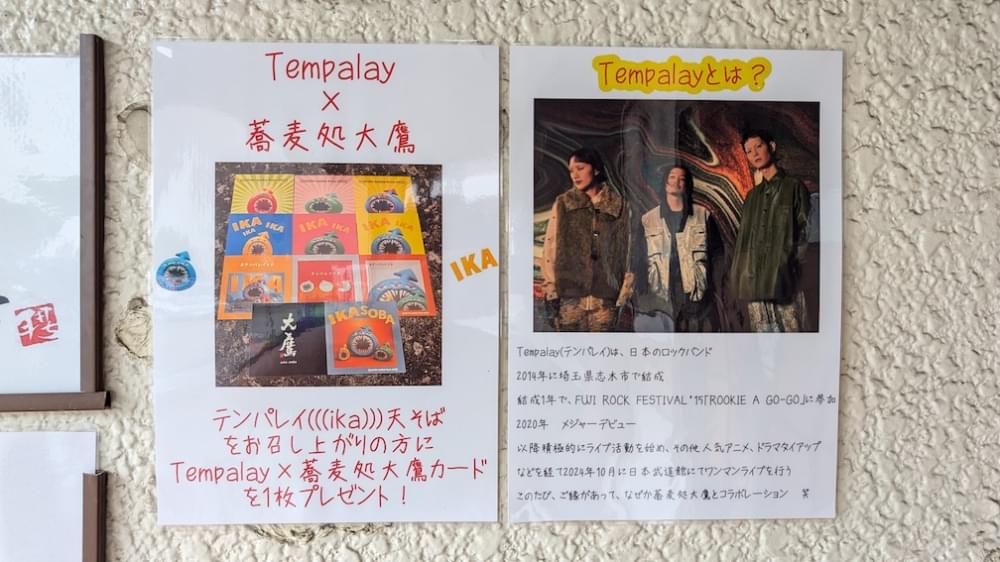 Tempalay
×
蕎麦処大鷹
IKA IKA
IKA
IKA
大鷹
IKASOBA
IKA
テンパレイ(((ika)))天そば
をお召し上がりの方に
Tempalay×蕎麦処大鷹カード
を1枚プレゼント！
Tempalayとは？
Tempalay(テンパレイ)は、日本のロックバンド
2014年に埼玉県志木市で結成
結成1年で、FUJI ROCK FESTIVAL'15「ROOKIE A GO-GO」に参加
2020年　メジャーデビュー
以降積極的にライブ活動を始め、その他人気アニメ、ドラマタイアップ
などを経て2024年10月に日本武道館にてワンマンライブを行う
このたび、ご縁があって、なぜか蕎麦処大鷹とコラボレーション　笑